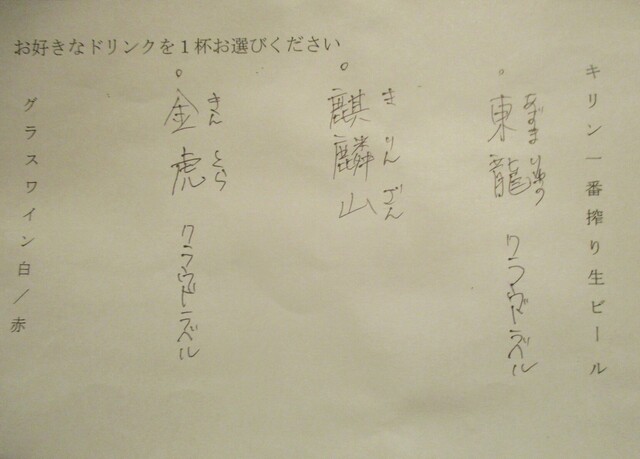 お好きなドリンクを１杯お選びください
キリン一番搾り生ビール
東龍 クラウドラベル
あずまりゅう
麒麟山
きりんざん
金虎 クラウドラベル
きんとら
グラスワイン白／赤